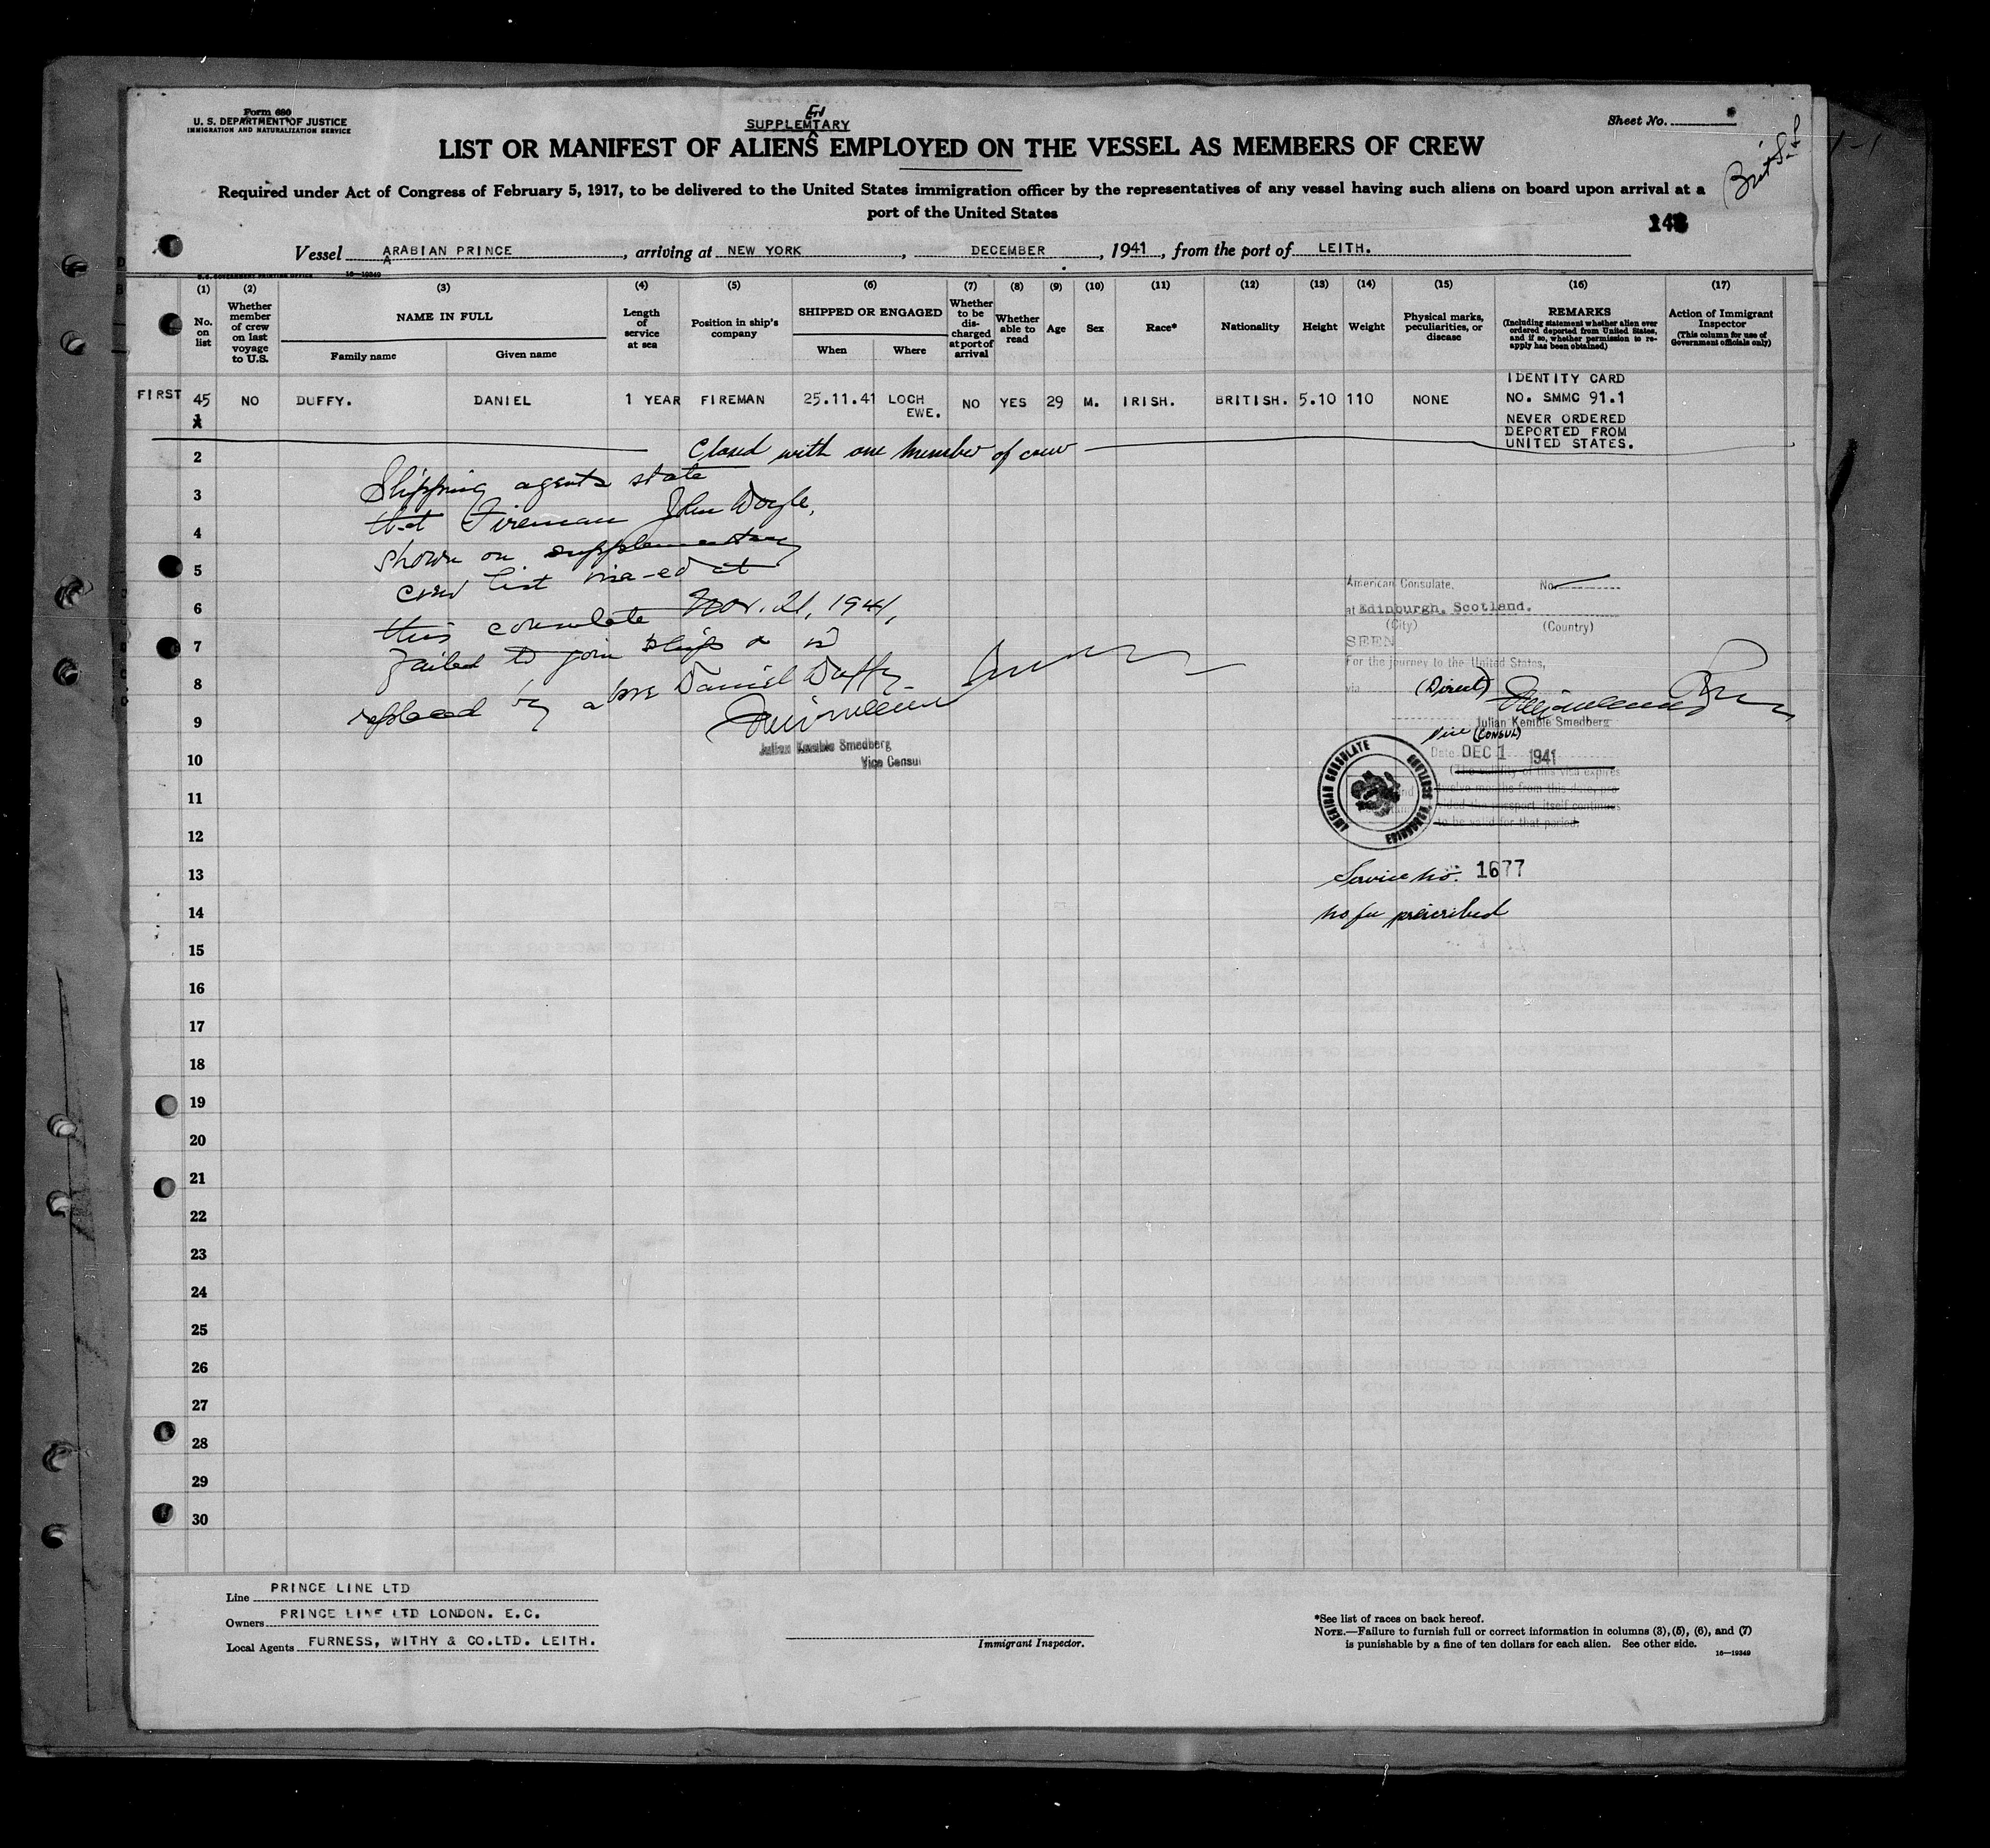 Form 680
U. S. DEPARTMENT OF JUSTICE
IMMIGRATION AND NATURALIZATION SERVICE
EN
SUPPLEMTARY
Sheet No.
LIST OR MANIFEST OF ALIENS EMPLOYED ON THE VESSEL AS MEMBERS OF CREW
Required under Act of Congress of February 5, 1917, to be delivered to the United States immigration officer by the representatives of any vessel having such aliens on board upon arrival at a
port of the United States
Vessel ARABIAN PRINCE, arriving at NEW YORK, DECEMBER, 1941, from the port of LEITH.
U.S. GOVERNMENT PRINTING OFFICE 16—19349
(1) (2) (3) (4) (5) (6) (7) (8) (9) (10) (11) (12) (13) (14) (15) (16) (17)
No. on list
Whether member of crew on last voyage to U.S.
NAME IN FULL
Family name
Given name
Length of service at sea
Position in ship's company
SHIPPED OR ENGAGED
When
Where
Whether to be discharged at port of arrival
Whether able to read
Age
Sex
Race*
Nationality
Height
Weight
Physical marks, peculiarities, or disease
REMARKS
(Including statement whether alien ever ordered deported from United States, and if so, whether permission to reapply has been obtained)
Action of Immigrant Inspector
(This column for use of Government officials only)
FIRST 45 NO DUFFY. DANIEL 1 YEAR FIREMAN 25.11.41 LOCH EWE. NO YES 29 M. IRISH. BRITISH. 5.10 110 NONE
IDENTITY CARD
NO. SMMC 91.1
NEVER ORDERED
DEPORTED FROM
UNITED STATES.
1
2 Closed with one member of crew
Shipping agents state
3
that Fireman John Doyle,
4
shown on supplementary
5
crew list visa-ed at
6
this consulate Nov. 21, 1941,
7
failed to join ship & is
8
replaced by above Daniel Duffy
9
Julian Kemble Smedberg
Vice Consul
10
11
12
13
14
15
16
17
18
19
20
21
22
23
24
25
26
27
28
29
30
American Consulate, No.
at Edinburgh, Scotland.
(City) (Country)
SEEN
For the journey to the United States,
via (Direct)
Julian Kemble Smedberg
Vice (CONSUL)
Date DEC 1 1941
(The validity of this visa expires
twelve months from this date, pro-
vided the passport itself continues
to be valid for that period.
AMERICAN CONSULATE
EDINBURGH, SCOTLAND
Service No. 1677
No fee prescribed
Line PRINCE LINE LTD
Owners PRINCE LINE LTD LONDON. E.C.
Local Agents FURNESS, WITHY & CO.LTD. LEITH.
Immigrant Inspector.
*See list of races on back hereof.
NOTE.—Failure to furnish full or correct information in columns (3), (5), (6), and (7)
is punishable by a fine of ten dollars for each alien. See other side.
16—19349